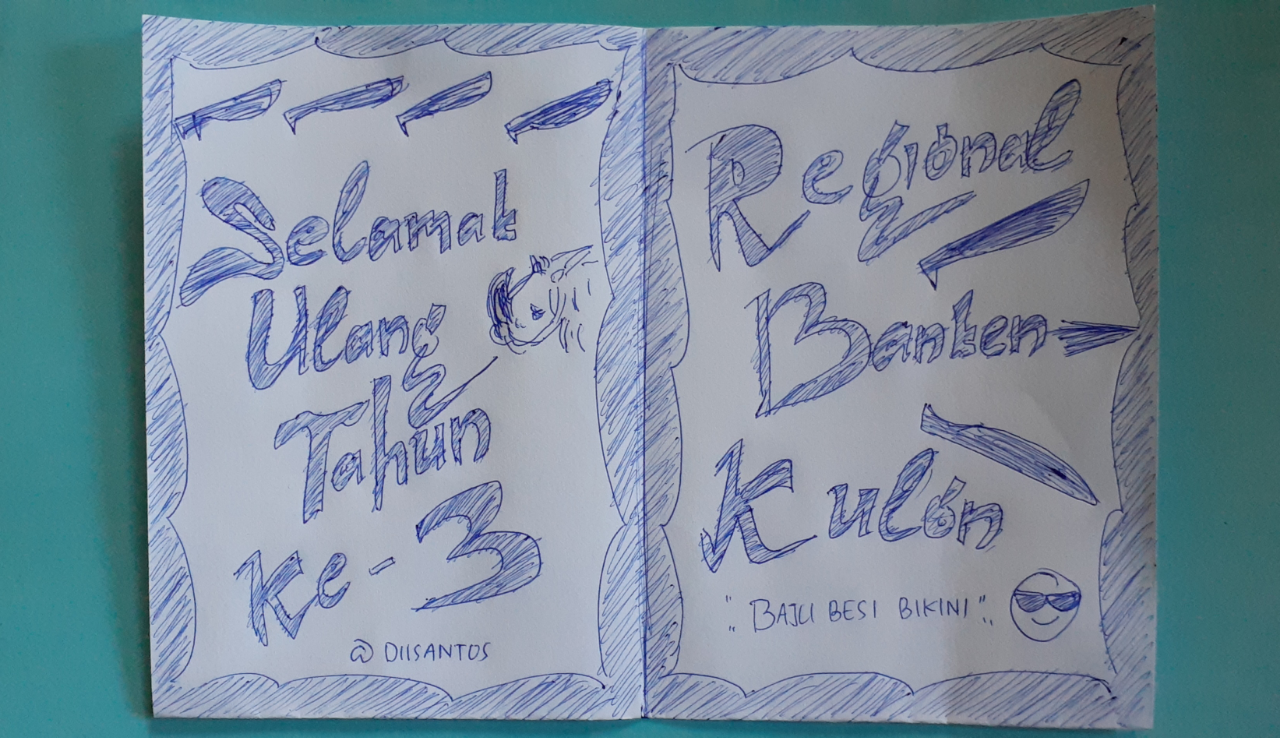 Selamat
Ulang
Tahun
Ke-3
@ DIISANTOS
Regional
Banten
Kulon
"BAJU BESI BIKINI"..